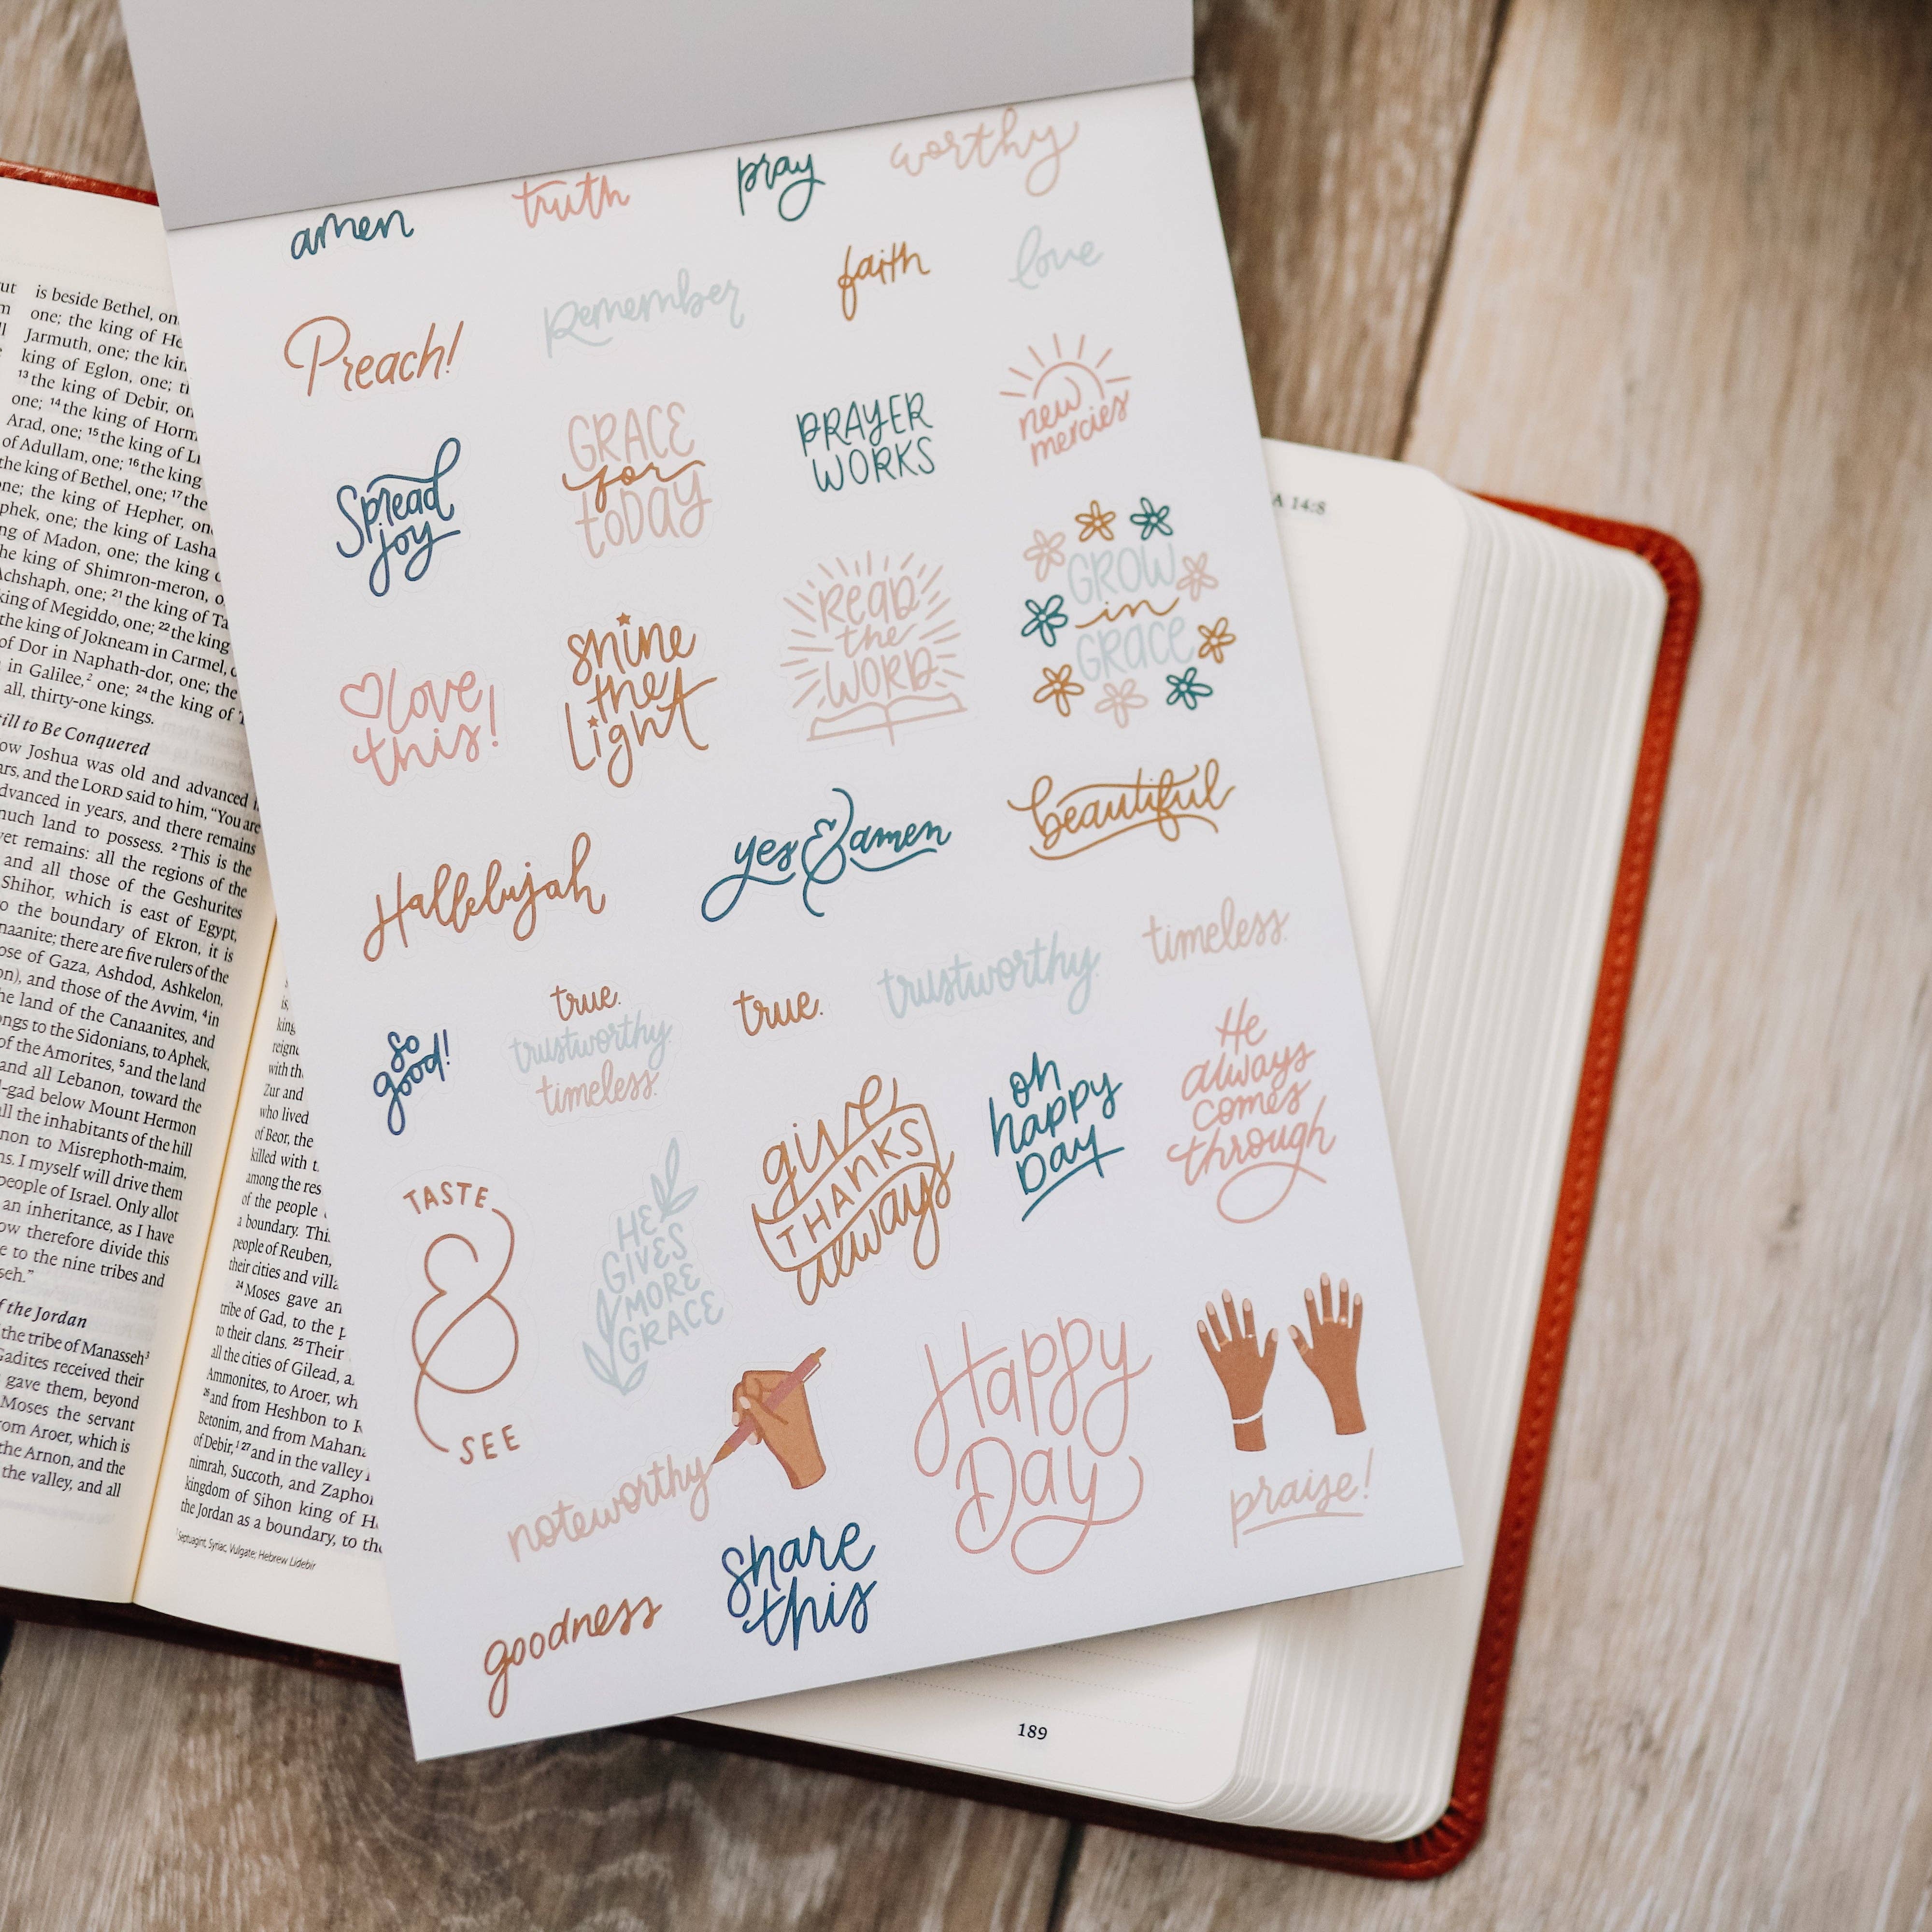 amen
truth
pray
worthy
Preach!
Remember
faith
love
Spread
joy
GRACE
for
toDAY
PRAYER
WORKS
new
mercies
love
this!
shine
the
Light
READ
the
WORD
GROW
in
GRACE
Hallelujah
yes & amen
beautiful
so
good!
true.
trustworthy.
timeless.
true.
trustworthy.
timeless.
TASTE
&
SEE
HE
GIVES
MORE
GRACE
give
THANKS
always
oh
happy
Day
He
always
comes
through
noteworthy
Happy
Day
praise!
goodness
share
this
is beside Bethel, on
one; the king of He
Jarmuth, one; the kin
king of Eglon, one; th
13 the king of Debir, on
one; 14 the king of Horm
Arad, one; 15 the king of Li
of Adullam, one; 16 the king
the king of Bethel, one; 17 the
one; the king of Hepher, on
phek, one; the king of Lasha
ng of Madon, one; the king o
he king of Shimron-meron, o
Achshaph, one; 21 the king of Ta
king of Megiddo, one; 22 the king
the king of Jokneam in Carmel, o
of Dor in Naphath-dor, one; the
in Galilee,2 one; 24 the king of T
all, thirty-one kings.
till to Be Conquered
ow Joshua was old and advanced i
ars, and the LORD said to him, "You are
dvanced in years, and there remains
much land to possess. 2 This is the
yet remains: all the regions of the
and all those of the Geshurites
Shihor, which is east of Egypt,
o the boundary of Ekron, it is
naanite; there are five rulers of the
ose of Gaza, Ashdod, Ashkelon,
on), and those of the Avvim, 4 in
he land of the Canaanites, and
ongs to the Sidonians, to Aphek,
of the Amorites, 5 and the land
and all Lebanon, toward the
l-gad below Mount Hermon
all the inhabitants of the hill
non to Misrephoth-maim,
ns. I myself will drive them
people of Israel. Only allot
an inheritance, as I have
ow therefore divide this
e to the nine tribes and
seh."
f the Jordan
the tribe of Manasseh3
Gadites received their
gave them, beyond
Moses the servant
rom Aroer, which is
the Arnon, and the
the valley, and all
is,
king
reigne
with th
Zur and
who lived
of Beor, the
killed with t
among the res
of the people
a boundary. Thi
people of Reuben,
their cities and villa
24 Moses gave an
tribe of Gad, to the p
to their clans. 25 Their
all the cities of Gilead, a
Ammonites, to Aroer, wh
26 and from Heshbon to R
Betonim, and from Mahana
of Debir,1 27 and in the valley
nimrah, Succoth, and Zaphon
kingdom of Sihon king of H
the Jordan as a boundary, to the
1 Septuagint, Syriac, Vulgate; Hebrew Lidebir
A 14:8
189